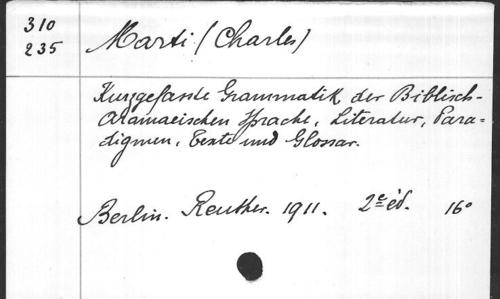 310
235
Marti (Charles)
Kurzgefasste Grammatik der Biblisch-
Aramaeischen Sprache, Literatur, Para=
digmen, Texte und Glossar.
Berlin. Reuther. 1911. 2e éd. 16°